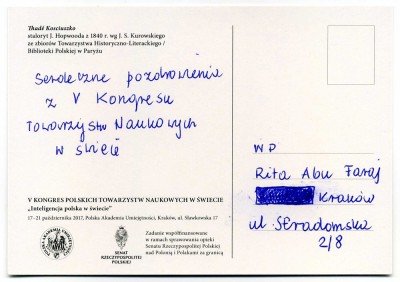 Thadé Kosciuszko
staloryt J. Hopwooda z 1840 r. wg J. S. Kurowskiego
ze zbiorów Towarzystwa Historyczno-Literackiego /
Biblioteki Polskiej w Paryżu
Serdeczne pozdrowienia
z V Kongresu
Towarzystw Naukowych
w świecie
V KONGRES POLSKICH TOWARZYSTW NAUKOWYCH W ŚWIECIE
„Inteligencja polska w świecie”
17–21 października 2017, Polska Akademia Umiejętności, Kraków, ul. Sławkowska 17
SENAT
RZECZYPOSPOLITEJ
POLSKIEJ
Zadanie współfinansowane
w ramach sprawowania opieki
Senatu Rzeczypospolitej Polskiej
nad Polonią i Polakami za granicą
WP
Rita Abu Faraj
Kraków
ul. Stradomska
2/8